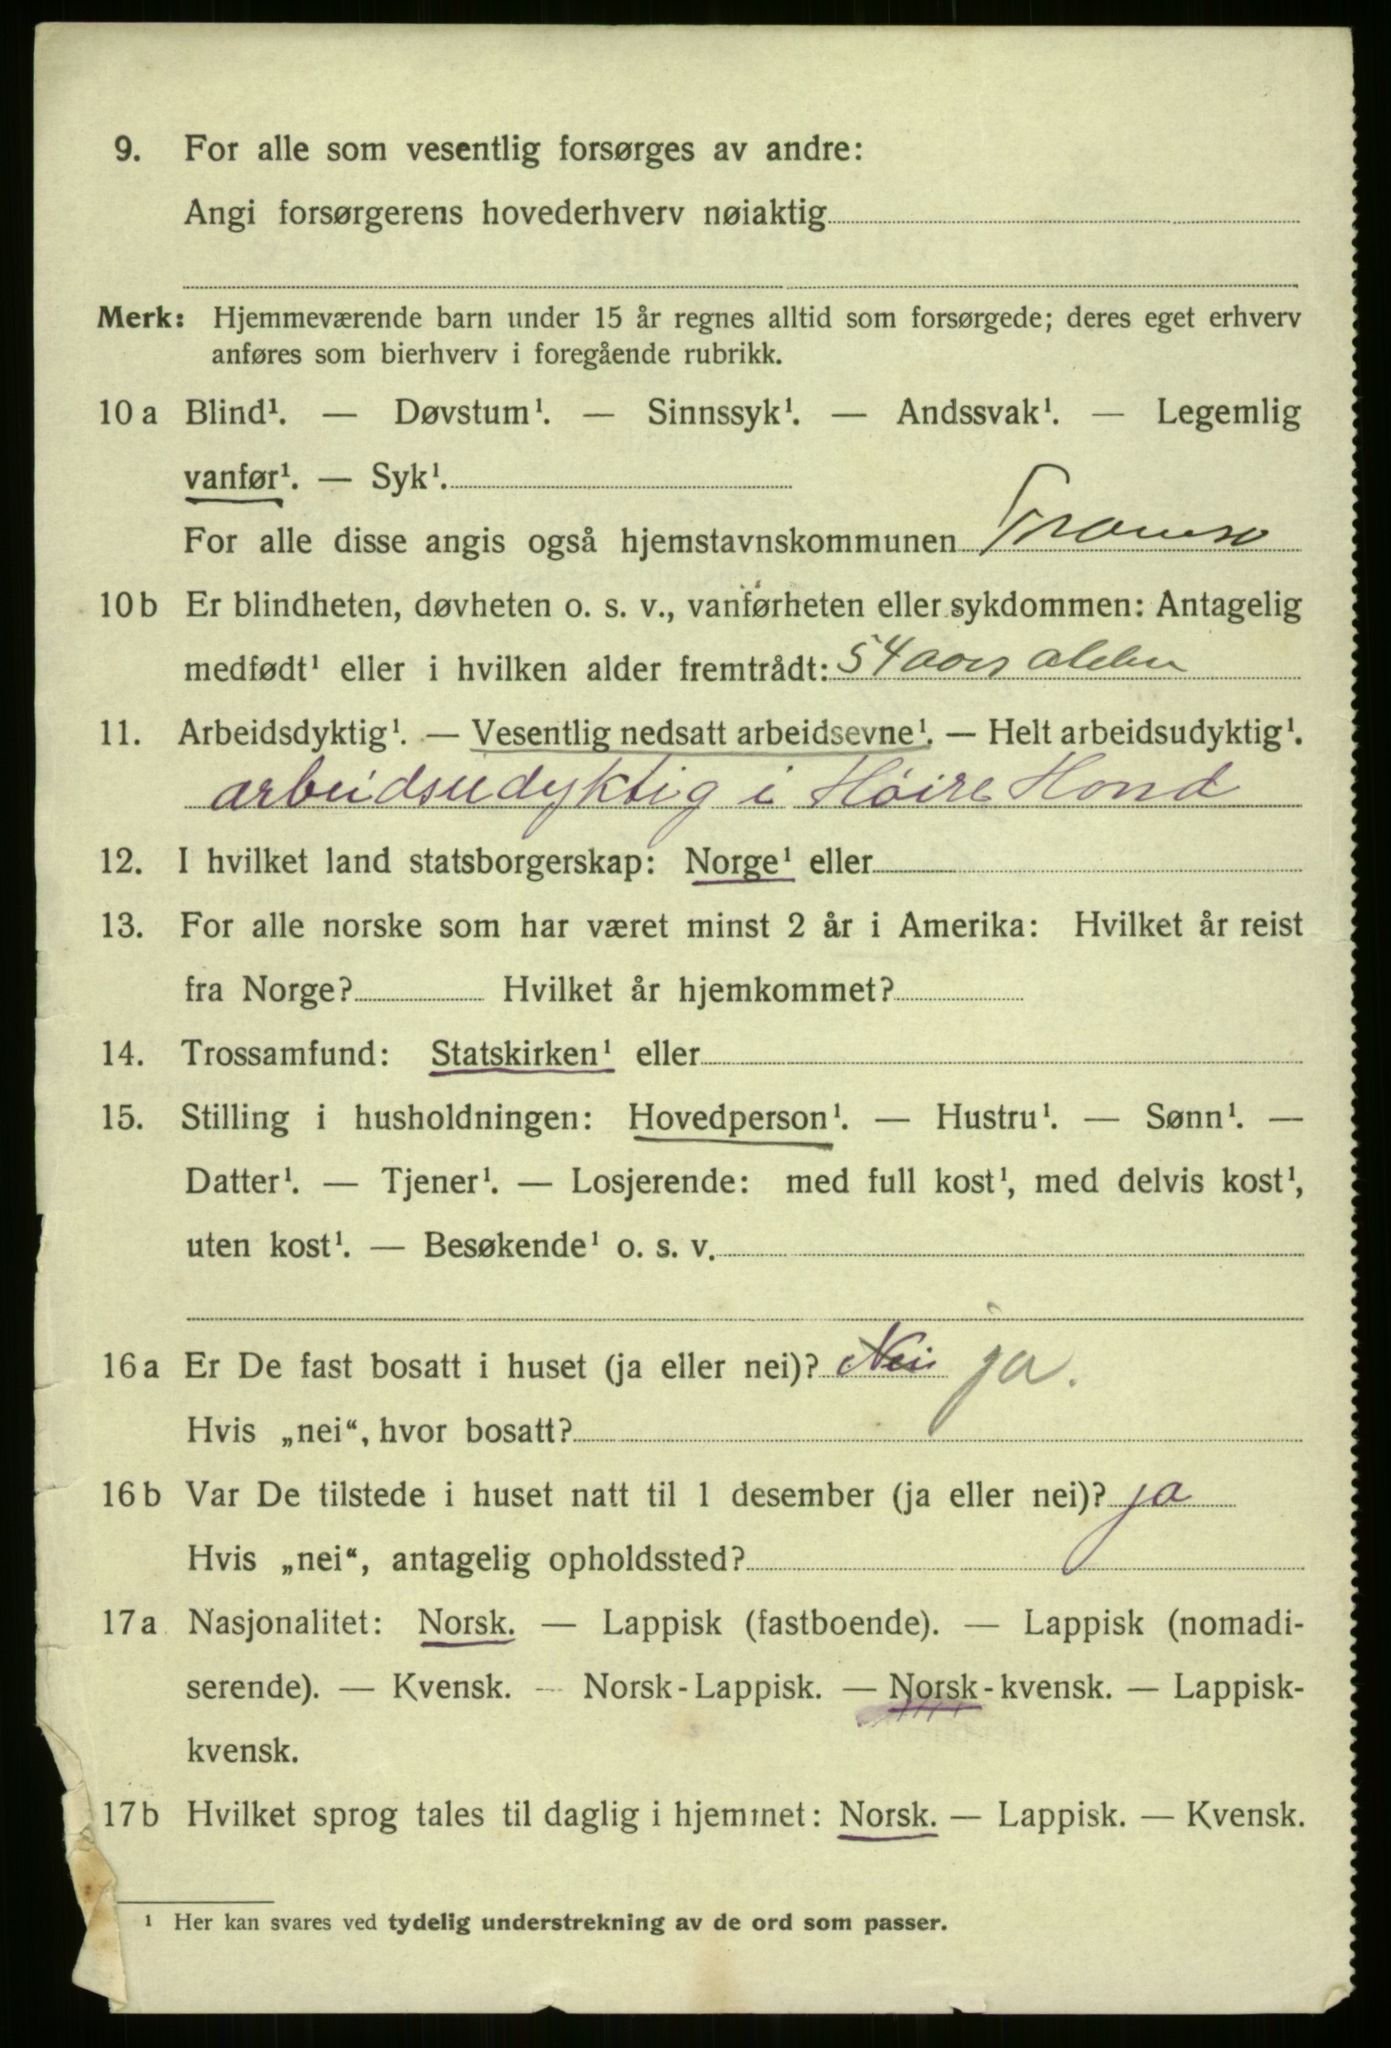 9. For alle som vesentlig forsørges av andre:
Angi forsørgerens hovederhverv nøiaktig
Merk: Hjemmeværende barn under 15 år regnes alltid som forsørgede; deres eget erhverv
anføres som bierhverv i foregående rubrikk.
10 a Blind¹. — Døvstum¹. — Sinnssyk¹. — Andssvak¹. — Legemlig
vanfør¹. — Syk¹.
For alle disse angis også hjemstavnskommunen Tromsø
10 b Er blindheten, døvheten o. s. v., vanførheten eller sykdommen: Antagelig
medfødt¹ eller i hvilken alder fremtrådt: 54 aars alder
11. Arbeidsdyktig¹. — Vesentlig nedsatt arbeidsevne¹. — Helt arbeidsudyktig¹.
arbeidsudyktig i Høire Hond
12. I hvilket land statsborgerskap: Norge¹ eller
13. For alle norske som har været minst 2 år i Amerika: Hvilket år reist
fra Norge? Hvilket år hjemkommet?
14. Trossamfund: Statskirken¹ eller
15. Stilling i husholdningen: Hovedperson¹. — Hustru¹. — Sønn¹. —
Datter¹. — Tjener¹. — Losjerende: med full kost¹, med delvis kost¹,
uten kost¹. — Besøkende¹ o. s. v.
16 a Er De fast bosatt i huset (ja eller nei)? Nei ja.
Hvis „nei“, hvor bosatt?
16 b Var De tilstede i huset natt til 1 desember (ja eller nei)? ja
Hvis „nei“, antagelig opholdssted?
17 a Nasjonalitet: Norsk. — Lappisk (fastboende). — Lappisk (nomadi-
serende). — Kvensk. — Norsk-Lappisk. — Norsk-kvensk. — Lappisk-
kvensk.
17 b Hvilket sprog tales til daglig i hjemmet: Norsk. — Lappisk. — Kvensk.
¹ Her kan svares ved tydelig understrekning av de ord som passer.